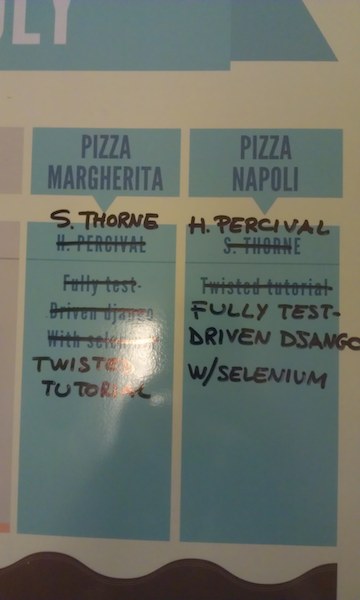 ULY
PIZZA
MARGHERITA
S. THORNE
H. PERCIVAL
Fully test-
Driven django
With selenium
TWISTED
TUTORIAL
PIZZA
NAPOLI
H. PERCIVAL
S. THORNE
Twisted tutorial
FULLY TEST-
DRIVEN DJANGO
W/SELENIUM